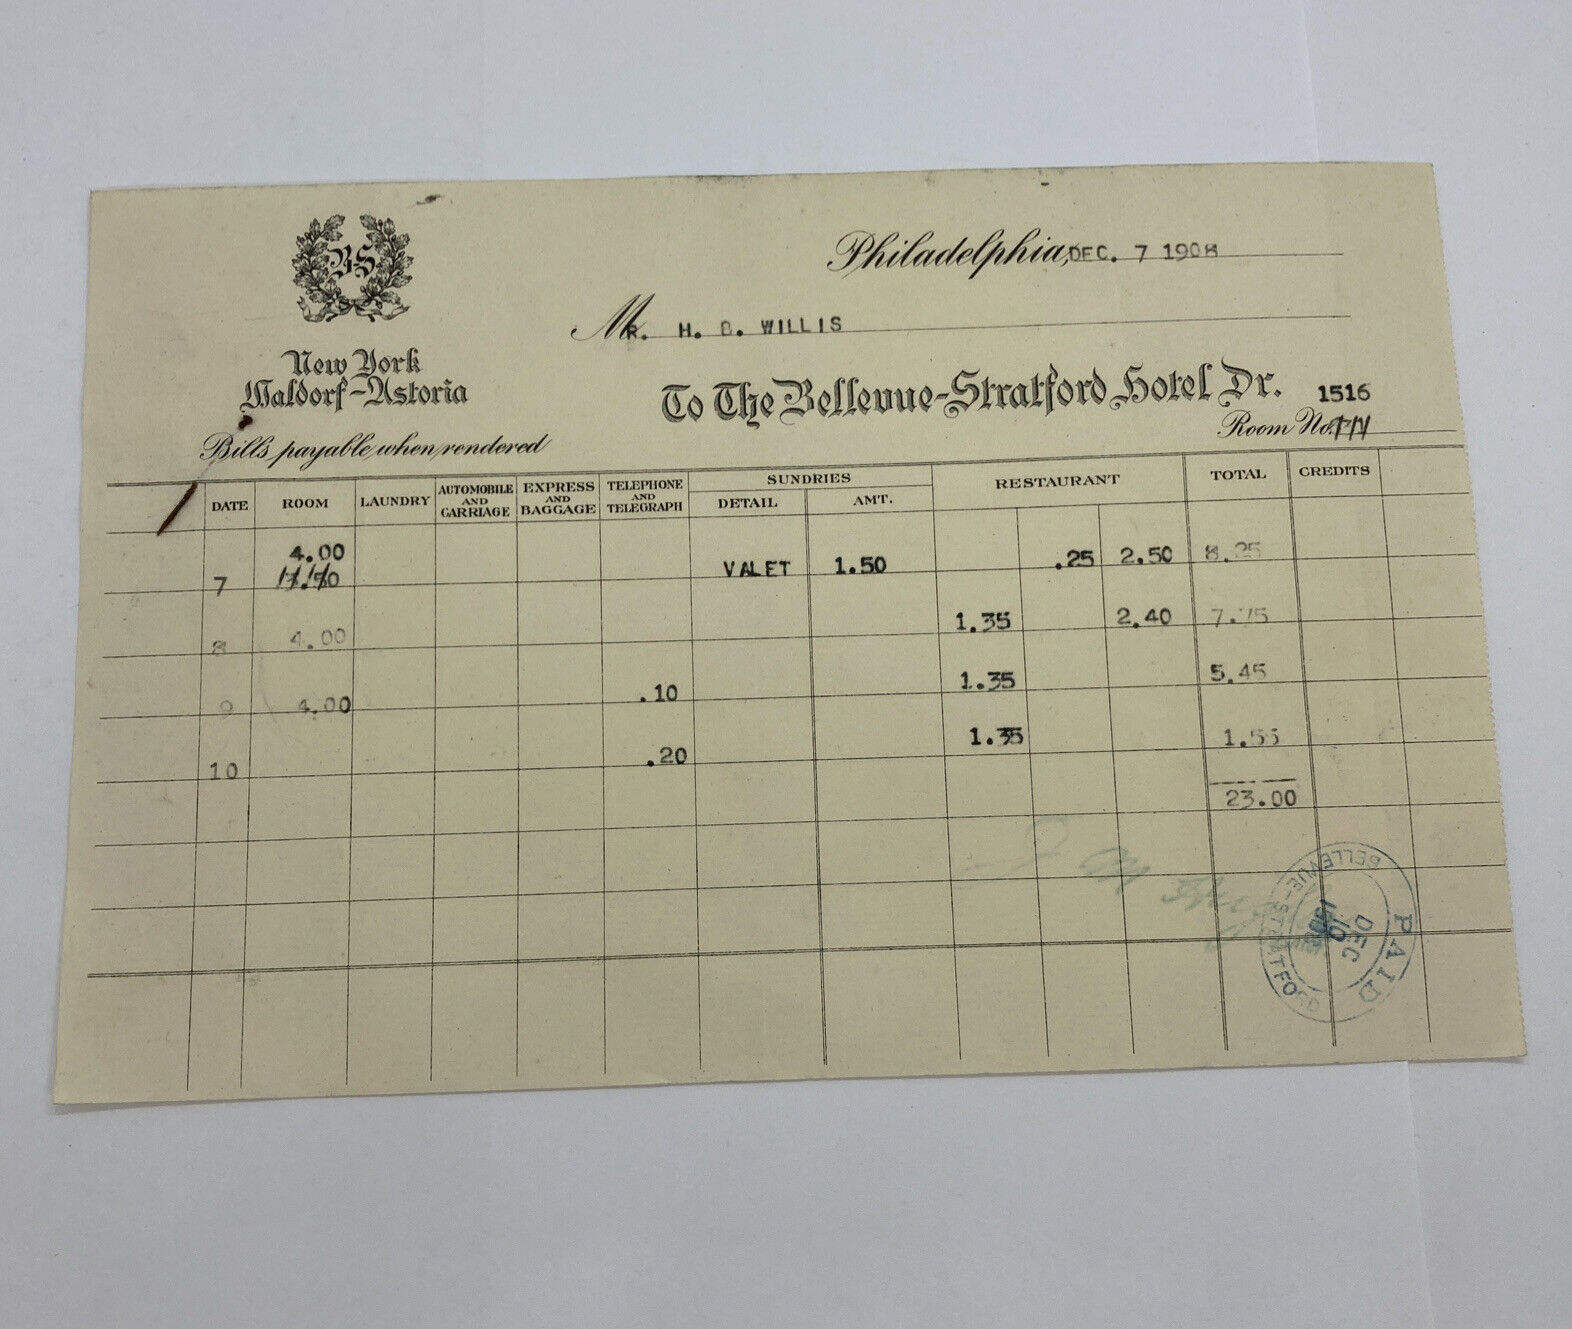 B-S
Philadelphia, DEC. 7 1908
MR. H. B. WILLIS
New York
Waldorf-Astoria
To The Bellevue-Stratford Hotel Dr.
1516
Room No.
Bills payable when rendered
DATE ROOM LAUNDRY AUTOMOBILE AND CARRIAGE EXPRESS AND BAGGAGE TELEPHONE AND TELEGRAPH SUNDRIES DETAIL AMT. RESTAURANT TOTAL CREDITS
4.00
7 VALET 1.50 .25 2.50 8.25
8 4.00 1.35 2.40 7.75
9 4.00 .10 1.35 5.45
10 .20 1.35 1.55
23.00
BELLEVUE-STRATFORD
PAID
DEC
10
1908